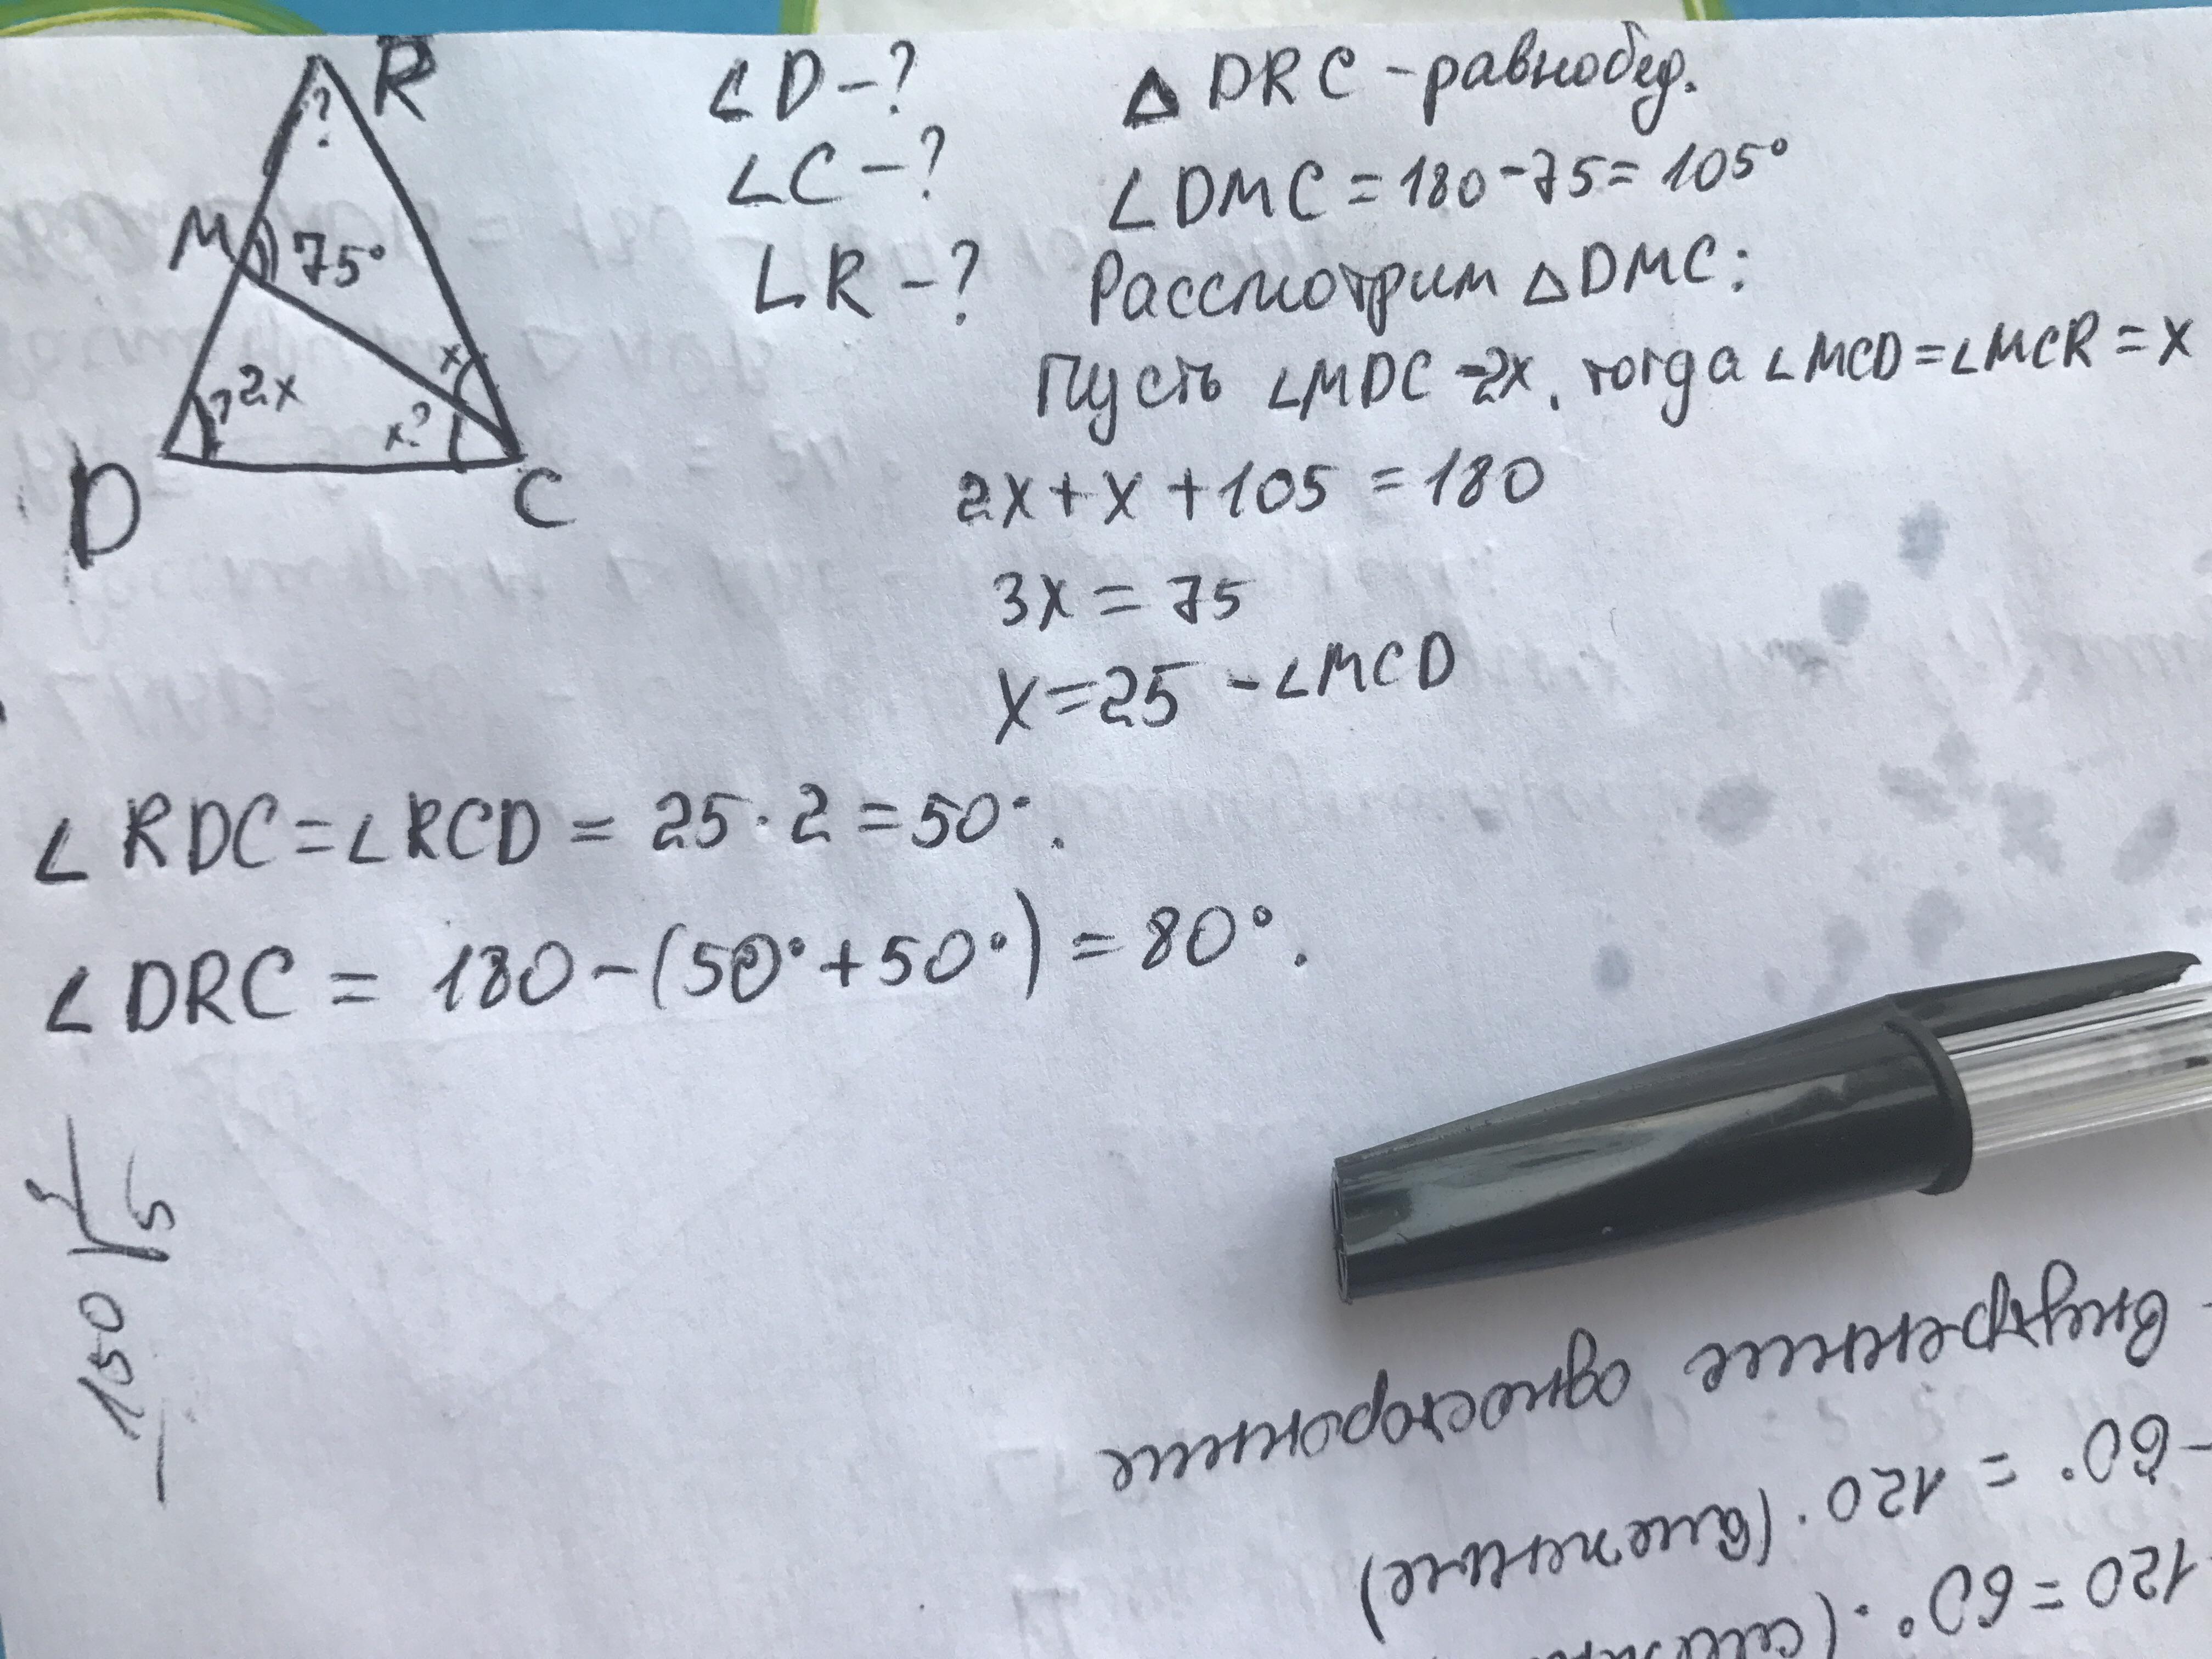 R
?
M 75°
x
? 2x
x?
D
C
∠D-?
∠C-?
∠R-?
△ DRC - равнобед.
∠DMC = 180-75= 105°
Рассмотрим △DMC:
Пусть ∠MDC =2x, тогда ∠MCD=∠MCR=x
2x+x+105 = 180
3x = 75
x=25 -∠MCD
∠RDC=∠RCD = 25·2=50°.
∠DRC = 180-(50°+50°) = 80°.
внутренние односторонние
-60° = 120°(смежные)
120=60°.